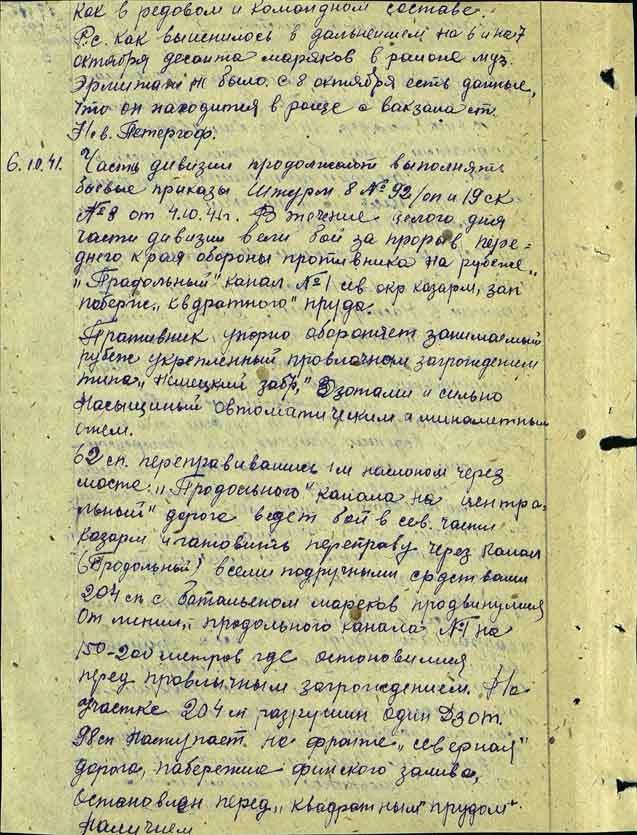 как в редовом и командном составе.
P.с. как выяснилось в дальнейшем на 6 и на 7
октября десанта маряков в районе муз.
Эрмитаж не было. С 8 октября есть данные,
что он находится в роще с вокзала ст.
Нов. Петергоф.
6.10.41. Часть дивизии продолжают выполнять
боевые приказы Штурм 8 № 92/оп и 19 ск
№ 8 от 4.10.41г. В течение целого дня
части дивизии вели бой за прорыв пере-
днего края обороны противника на рубеже
"Традольный" канал № 1 сев окр казарм, зап
побереж. "квдратного" пруда.
Противник упорно обороняет занимаемый
рубеж укрепленный провлочном загрождением
типа "Немецкий забр," Дзотами и сильно
насыщиный автоматическим и минометным
огнем.
62 сп. переправившись 1м на
через
мосте "Продольного" канала на центра-
льный" дорога ведет бой в сев. части
казарм и гатовить переправу через канал
(Продольный) всеми подручными средствами
204 сп с батальеном маряков продвинулися
от линии "продольного канала № 1 на
150-200 метров где остоновилися
перед провлычным загрождением. На
участке 204 сп разрушин один Дзот.
98 сп наступает по фронте "северная"
дорога, набережне финского залива,
остоновлен перед "квадратным" прудом
наличием